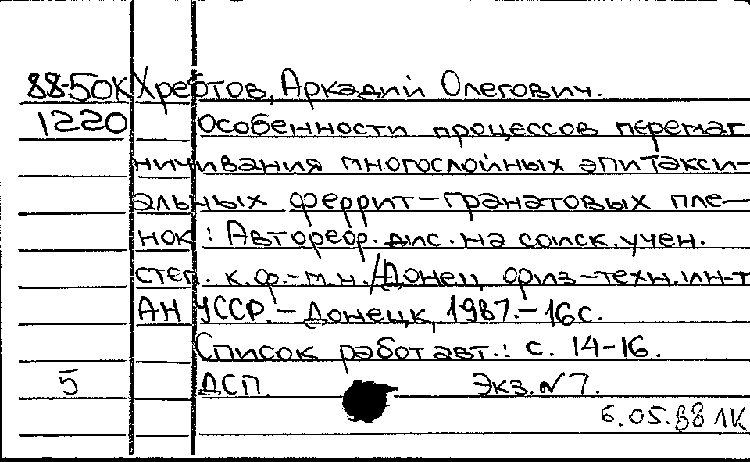 88-50К Хребтов, Аркадий Олегович.
1220 Особенности процессов перемаг
ничивания многослойных эпитакси-
альных феррит-гранатовых пле-
нок : Автореф. дис. на соиск. учен.
степ. к.ф.-м.н. / Донец. физ-техн. ин-т
АН УССР. - Донецк, 1987. - 16 с.
Список работ авт.: с. 14-16.
5 ДСП. Экз. N 7.
6.05.88 ЛК